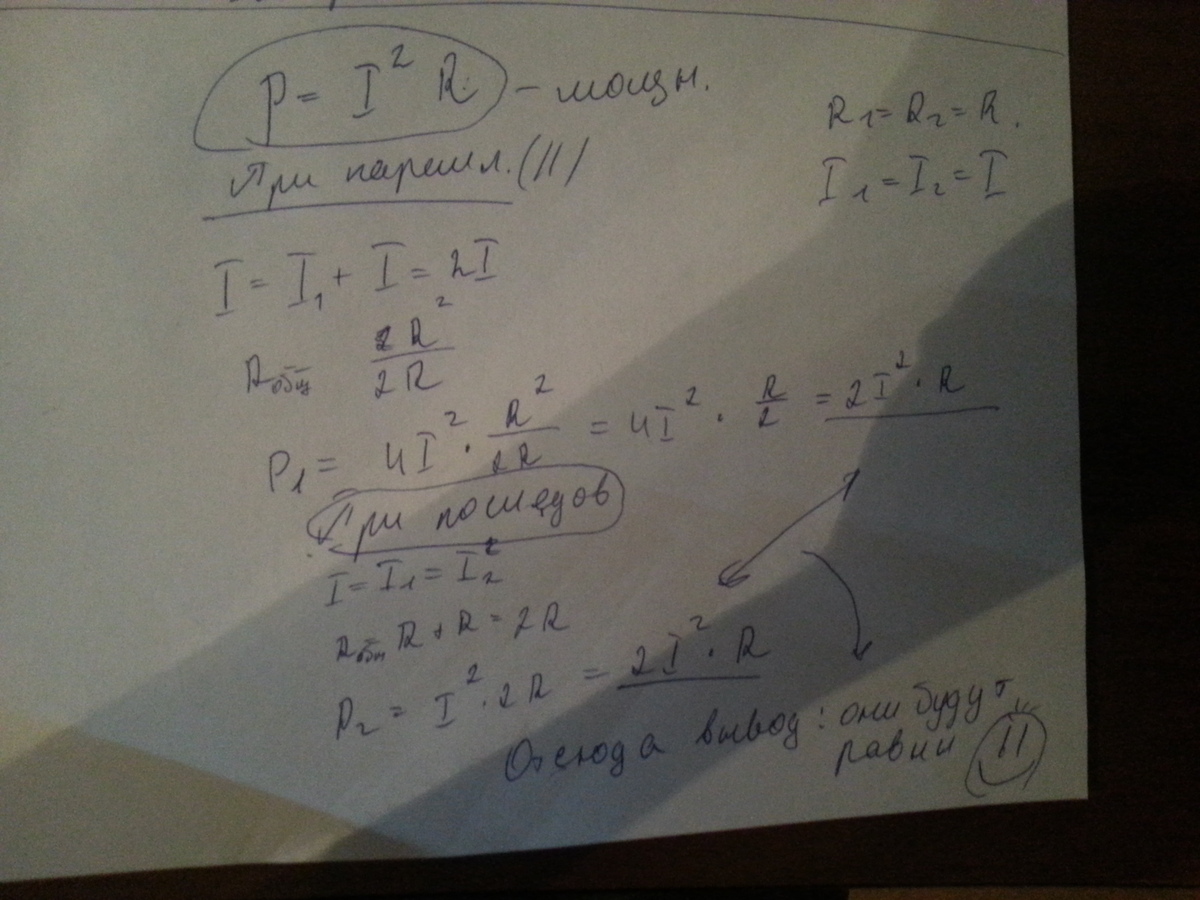 P = I² R - мощн.
R₁ = R₂ = R.
I₁ = I₂ = I
При паралл. (II)
I = I₁ + I = 2I
Rобщ 2R² / 2R
P₁ = 4I² · R² / 2R = 4I² · R / 2 = 2I² · R
При последов
I = I₁ = I₂
Rобщ = R + R = 2R
P₂ = I² · 2R = 2I² · R
Отсюда вывод: они будут
равны II